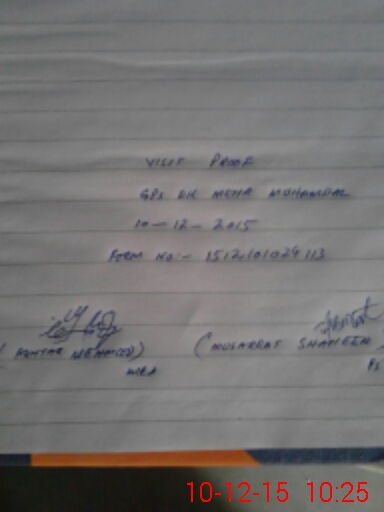 VISIT PROOF
GPS DK MEHR MUHAMMAD
10-12-2015
FORM NO:- 
( AKHTAR MEHMOOD) (MUSARRAT SHAHEEN
10-12-15 10:25